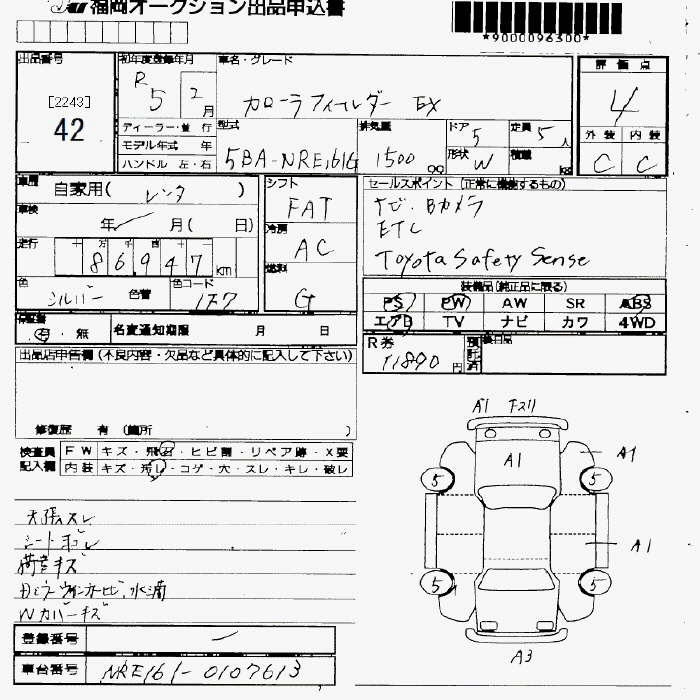 福岡オークション出品申込書
*9000096300*
出品番号
[2243]
42
初年度登録年月
R 5 2月
車名・グレード
カローラフィールダー EX
ディーラー・並行
モデル年式 年
ハンドル 左・右
型式
5BA-NRE161G
排気量
1500 cc
ドア 5
形状 W
定員 5人
積載 kg
評価点
4
外装 内装
C C
車歴
自家用( レンタ )
車検
年 月( 日)
走行
十 万 千 百 十 一
86947 km
色
シルバー 色替
色コード
1F7
シフト
FAT
冷房
AC
燃料
G
セールスポイント(正常に機能するもの)
ナビ・Bカメラ
ETC
Toyota Safety Sense
装備品(純正品に限る)
PS PW AW SR ABS
エアB TV ナビ カワ 4WD
保証書
有・無
名変通知期限 月 日
R券
11890円
預託済
後日品
出品店申告欄(不良内容・欠品など具体的に記入して下さい)
修復歴 有(箇所 )
検査員
記入欄
FW キズ・飛石・ヒビ割・リペア跡・X要
内装 キズ・汚レ・コゲ・穴・スレ・キレ・破レ
天張スレ
シートヨゴレ
荷室キズ
Wカバーキズ
A1 キズ
A1
A1
5 5
A1
5 5
A3
登録番号 ー
車台番号 NRE161-0107613